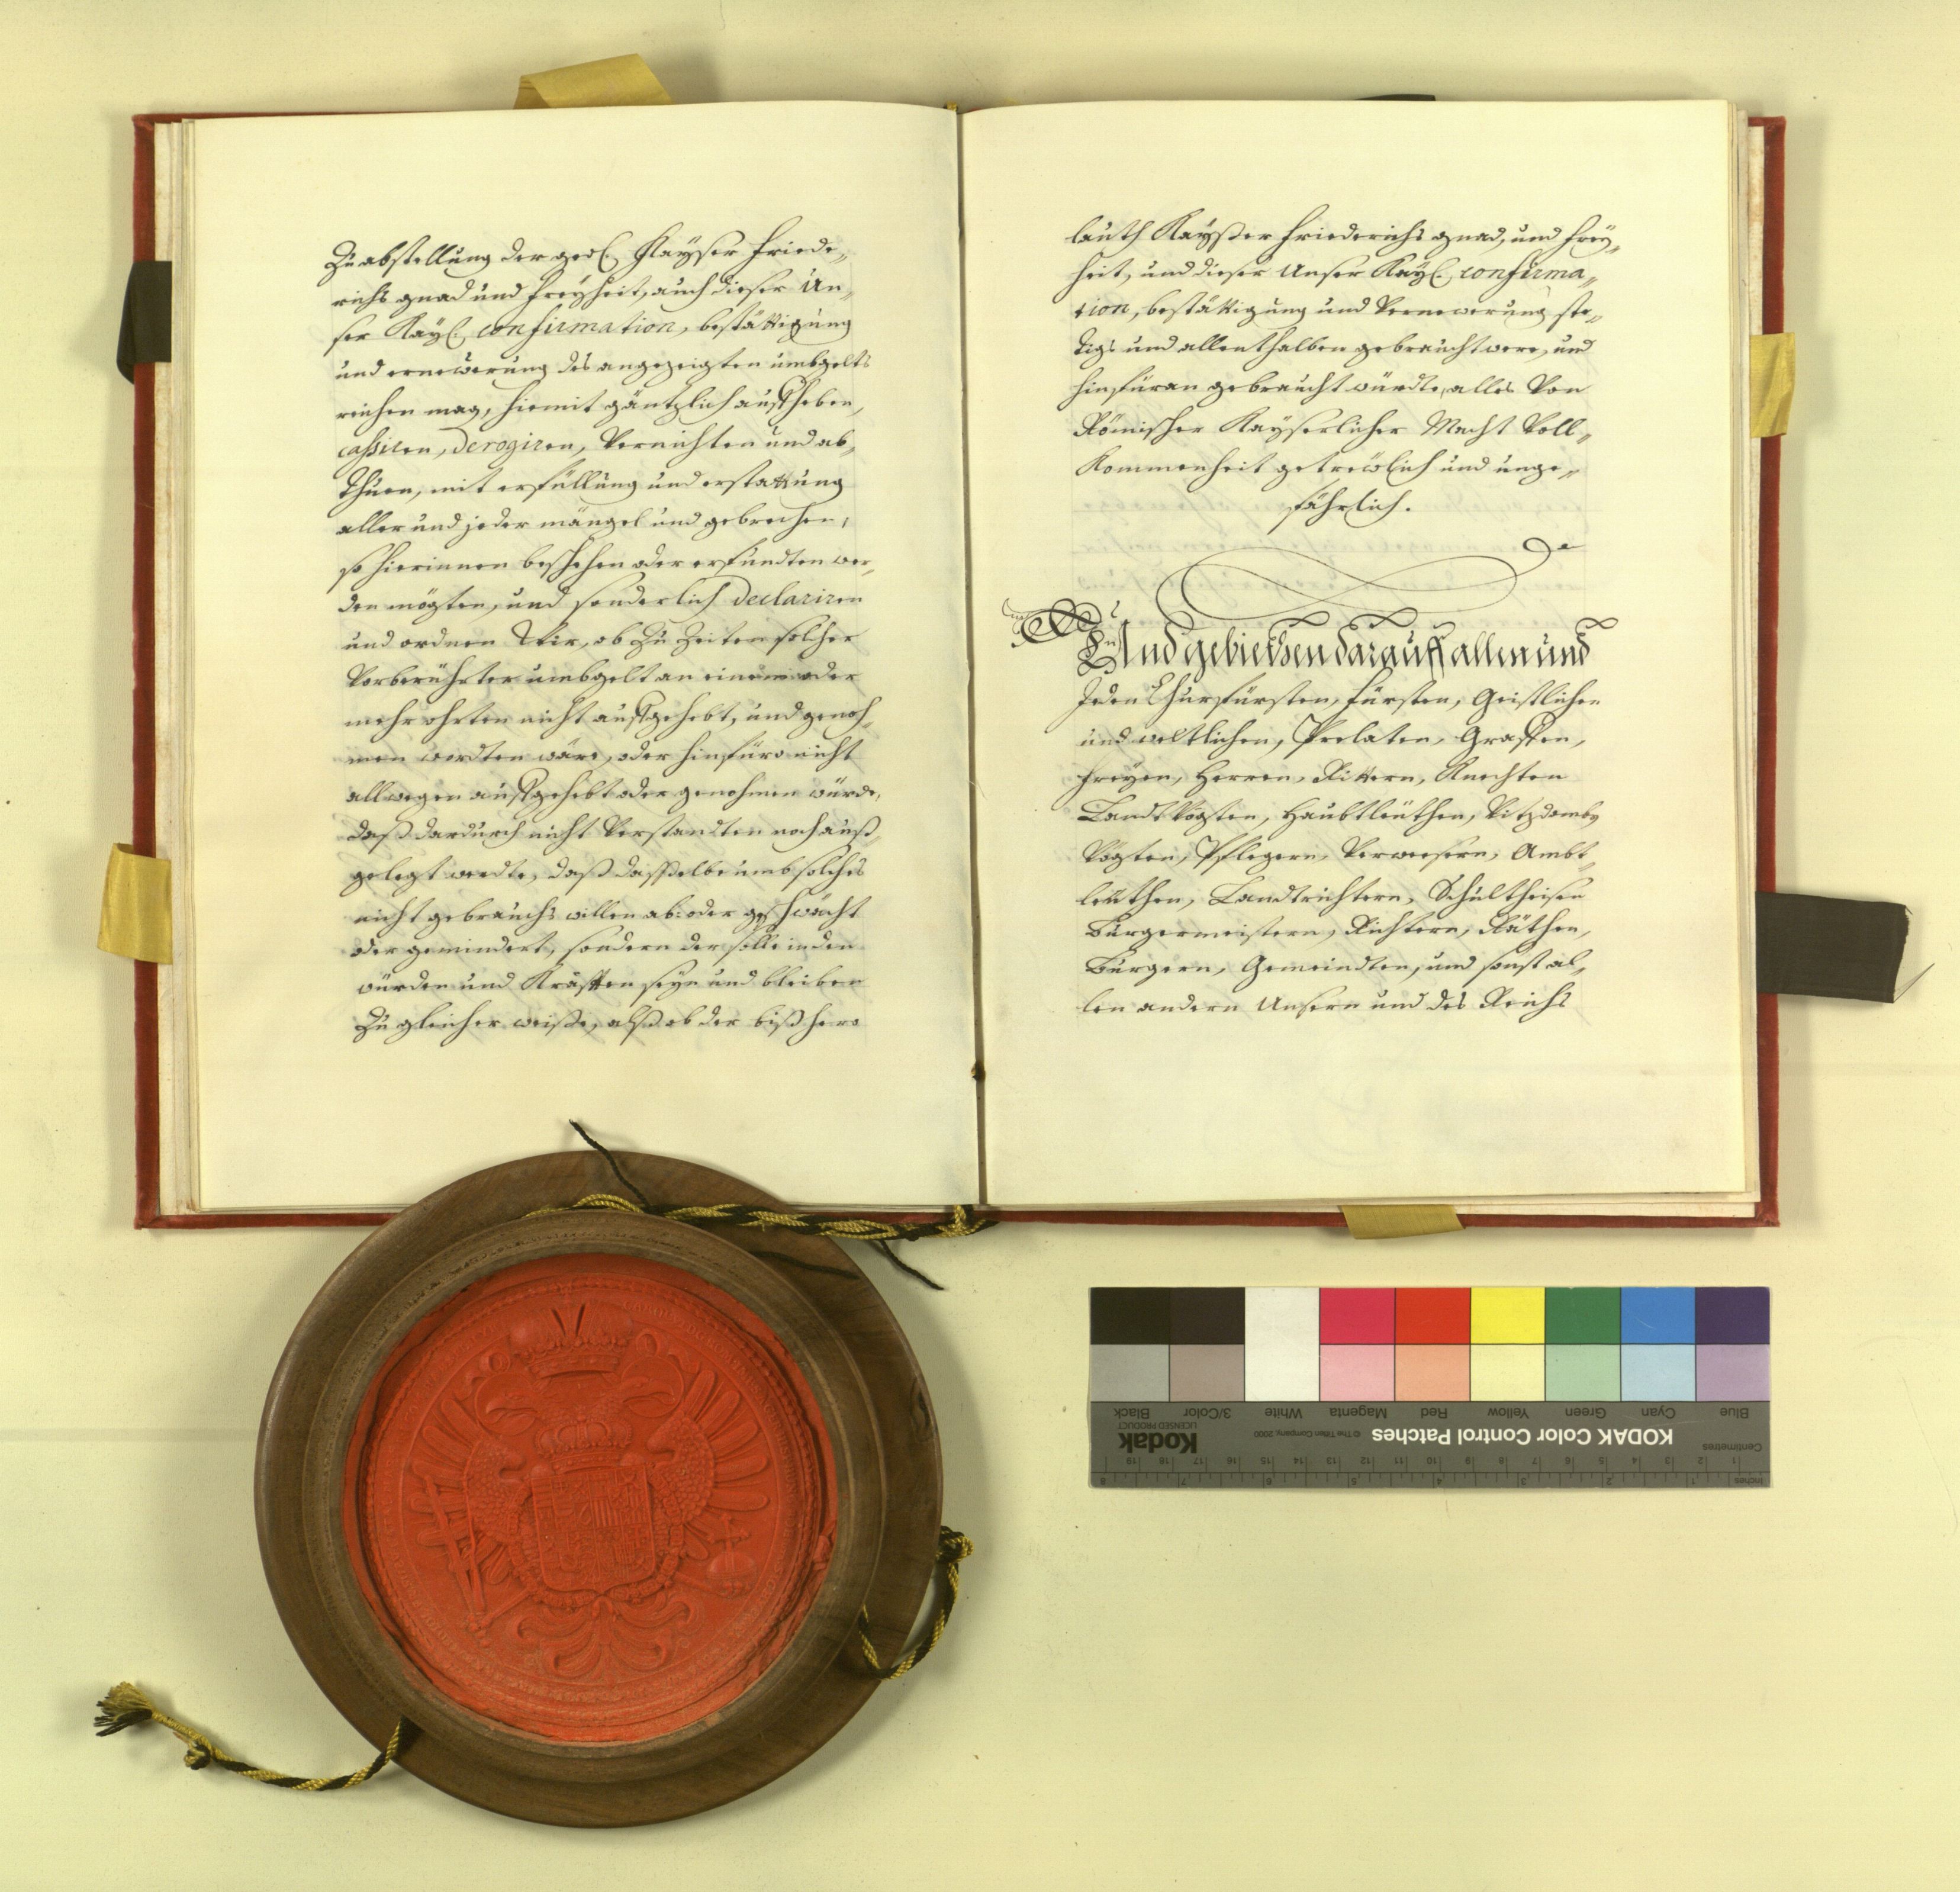 Zu abstellung der ged. Kayser Friede„
richs gnad und freyheit, auch dieser Un„
ser Kayl. confirmation, bestättigung
und ernewerung des angezeigten umbgelts
reichen mag, hiemit gäntzlich auffheben,
cassiren, derogiren, Vernichten und ab„
Thuen, mit erfüllung und erstattung
aller und jeder mängel und gebrechen,
so hierinnen beschehen oder erfundten wer„
den mögten, und sonderlich declariren
und ordnen Wir, ob Zu Zeiten solcher
Vorberührter umbgelt an einem oder
mehr ohrten nicht auffgehebt, und genoh„
men wordten wäre, oder hinfüro nicht
allwegen auffgehebt oder genohmen würde,
daß dardurch nicht Verstandten noch auß„
gelegt werdte, daß dasselbe umb solches
nicht gebrauchs willen ab: oder geschwächt
oder gemindert, sondern der solle in den
würden und Kräfften seyn und bleiben
Zu gleicher weiße, alß ob der bißhero
lauth Kayßer Friederichs gnad, und frey„
heit, und dieser Unser Kayl. confirma„
tion, bestättigung und Vernewerung ste„
tigs und allenthalben gebraucht were, und
hinfüran gebraucht würdte, alles Von
Römischer Kayserlicher Macht Voll„
Kommenheit getrewlich und unge„
fährlich.
Und gebiethen darauff allen und
Jeden Churfürsten, Fürsten, Geistlichen
und weltlichen, Prelaten, Graffen,
Freyen, Herren, Rittern, Knechten
Landt Vögten, Haubtleuthen, Vitzdomben
Vögten, Pflegern, Verwesern, Ambt„
leuthen, Landtrichtern, Schultheisen
Bürgermeistern, Richtern, Räthen,
Bürgern, Gemeindten, und sonst al„
len andern Unsern und des Reichs
KODAK Color Control Patches
© The Tiffen Company, 2000
Kodak
LICENSED PRODUCT
Blue Cyan Green Yellow Red Magenta White 3/Color Black
Centimetres
1 2 3 4 5 6 7 8 9 10 11 12 13 14 15 16 17 18 19
Inches 1 2 3 4 5 6 7 8